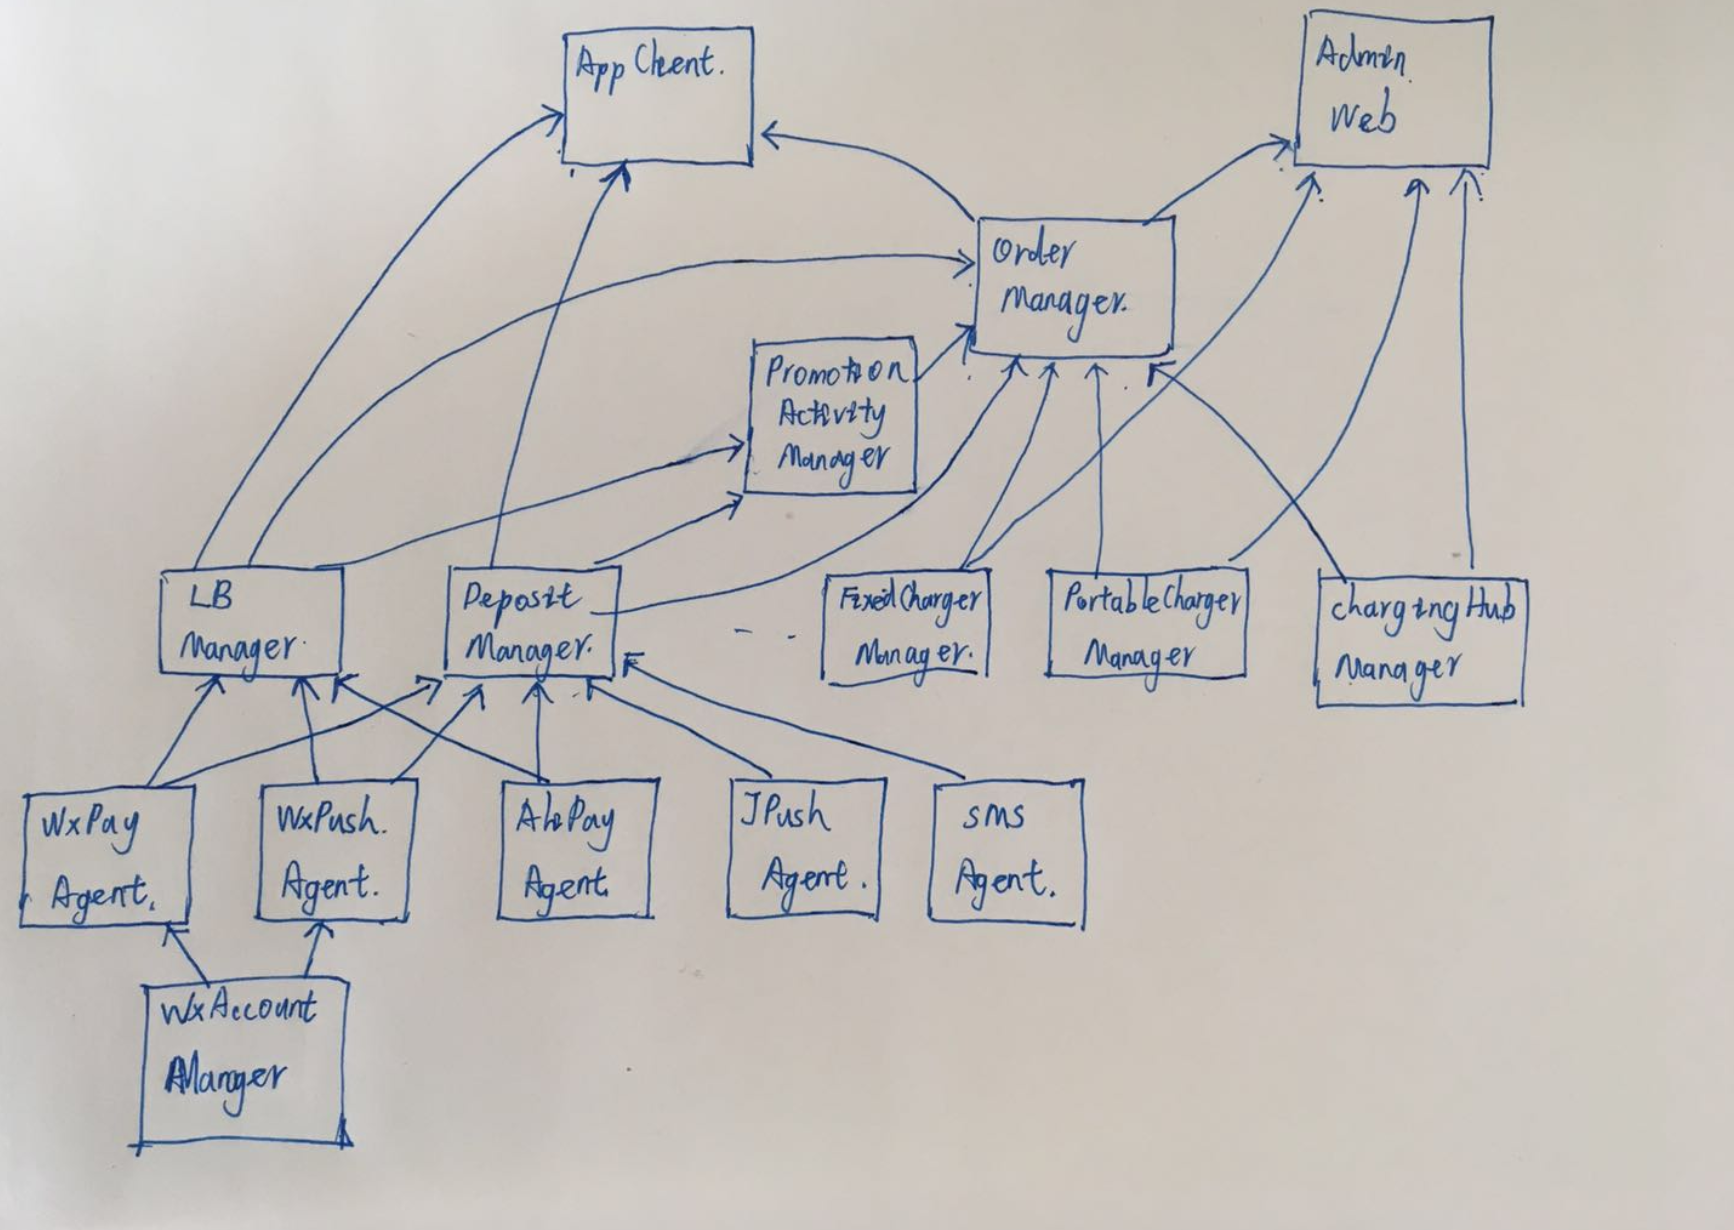 App Client.
Admin
Web
Order
Manager.
Promotion
Activity
Manager
LB
Manager.
Deposit
Manager.
FixedCharger
Manager.
PortableCharger
Manager
chargingHub
Manager
WxPay
Agent.
WxPush.
Agent.
AliPay
Agent
JPush
Agent.
sms
Agent.
WxAccount
Manger